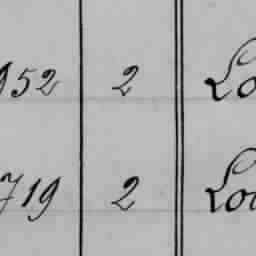 952 2 Lo
719 2 Loc